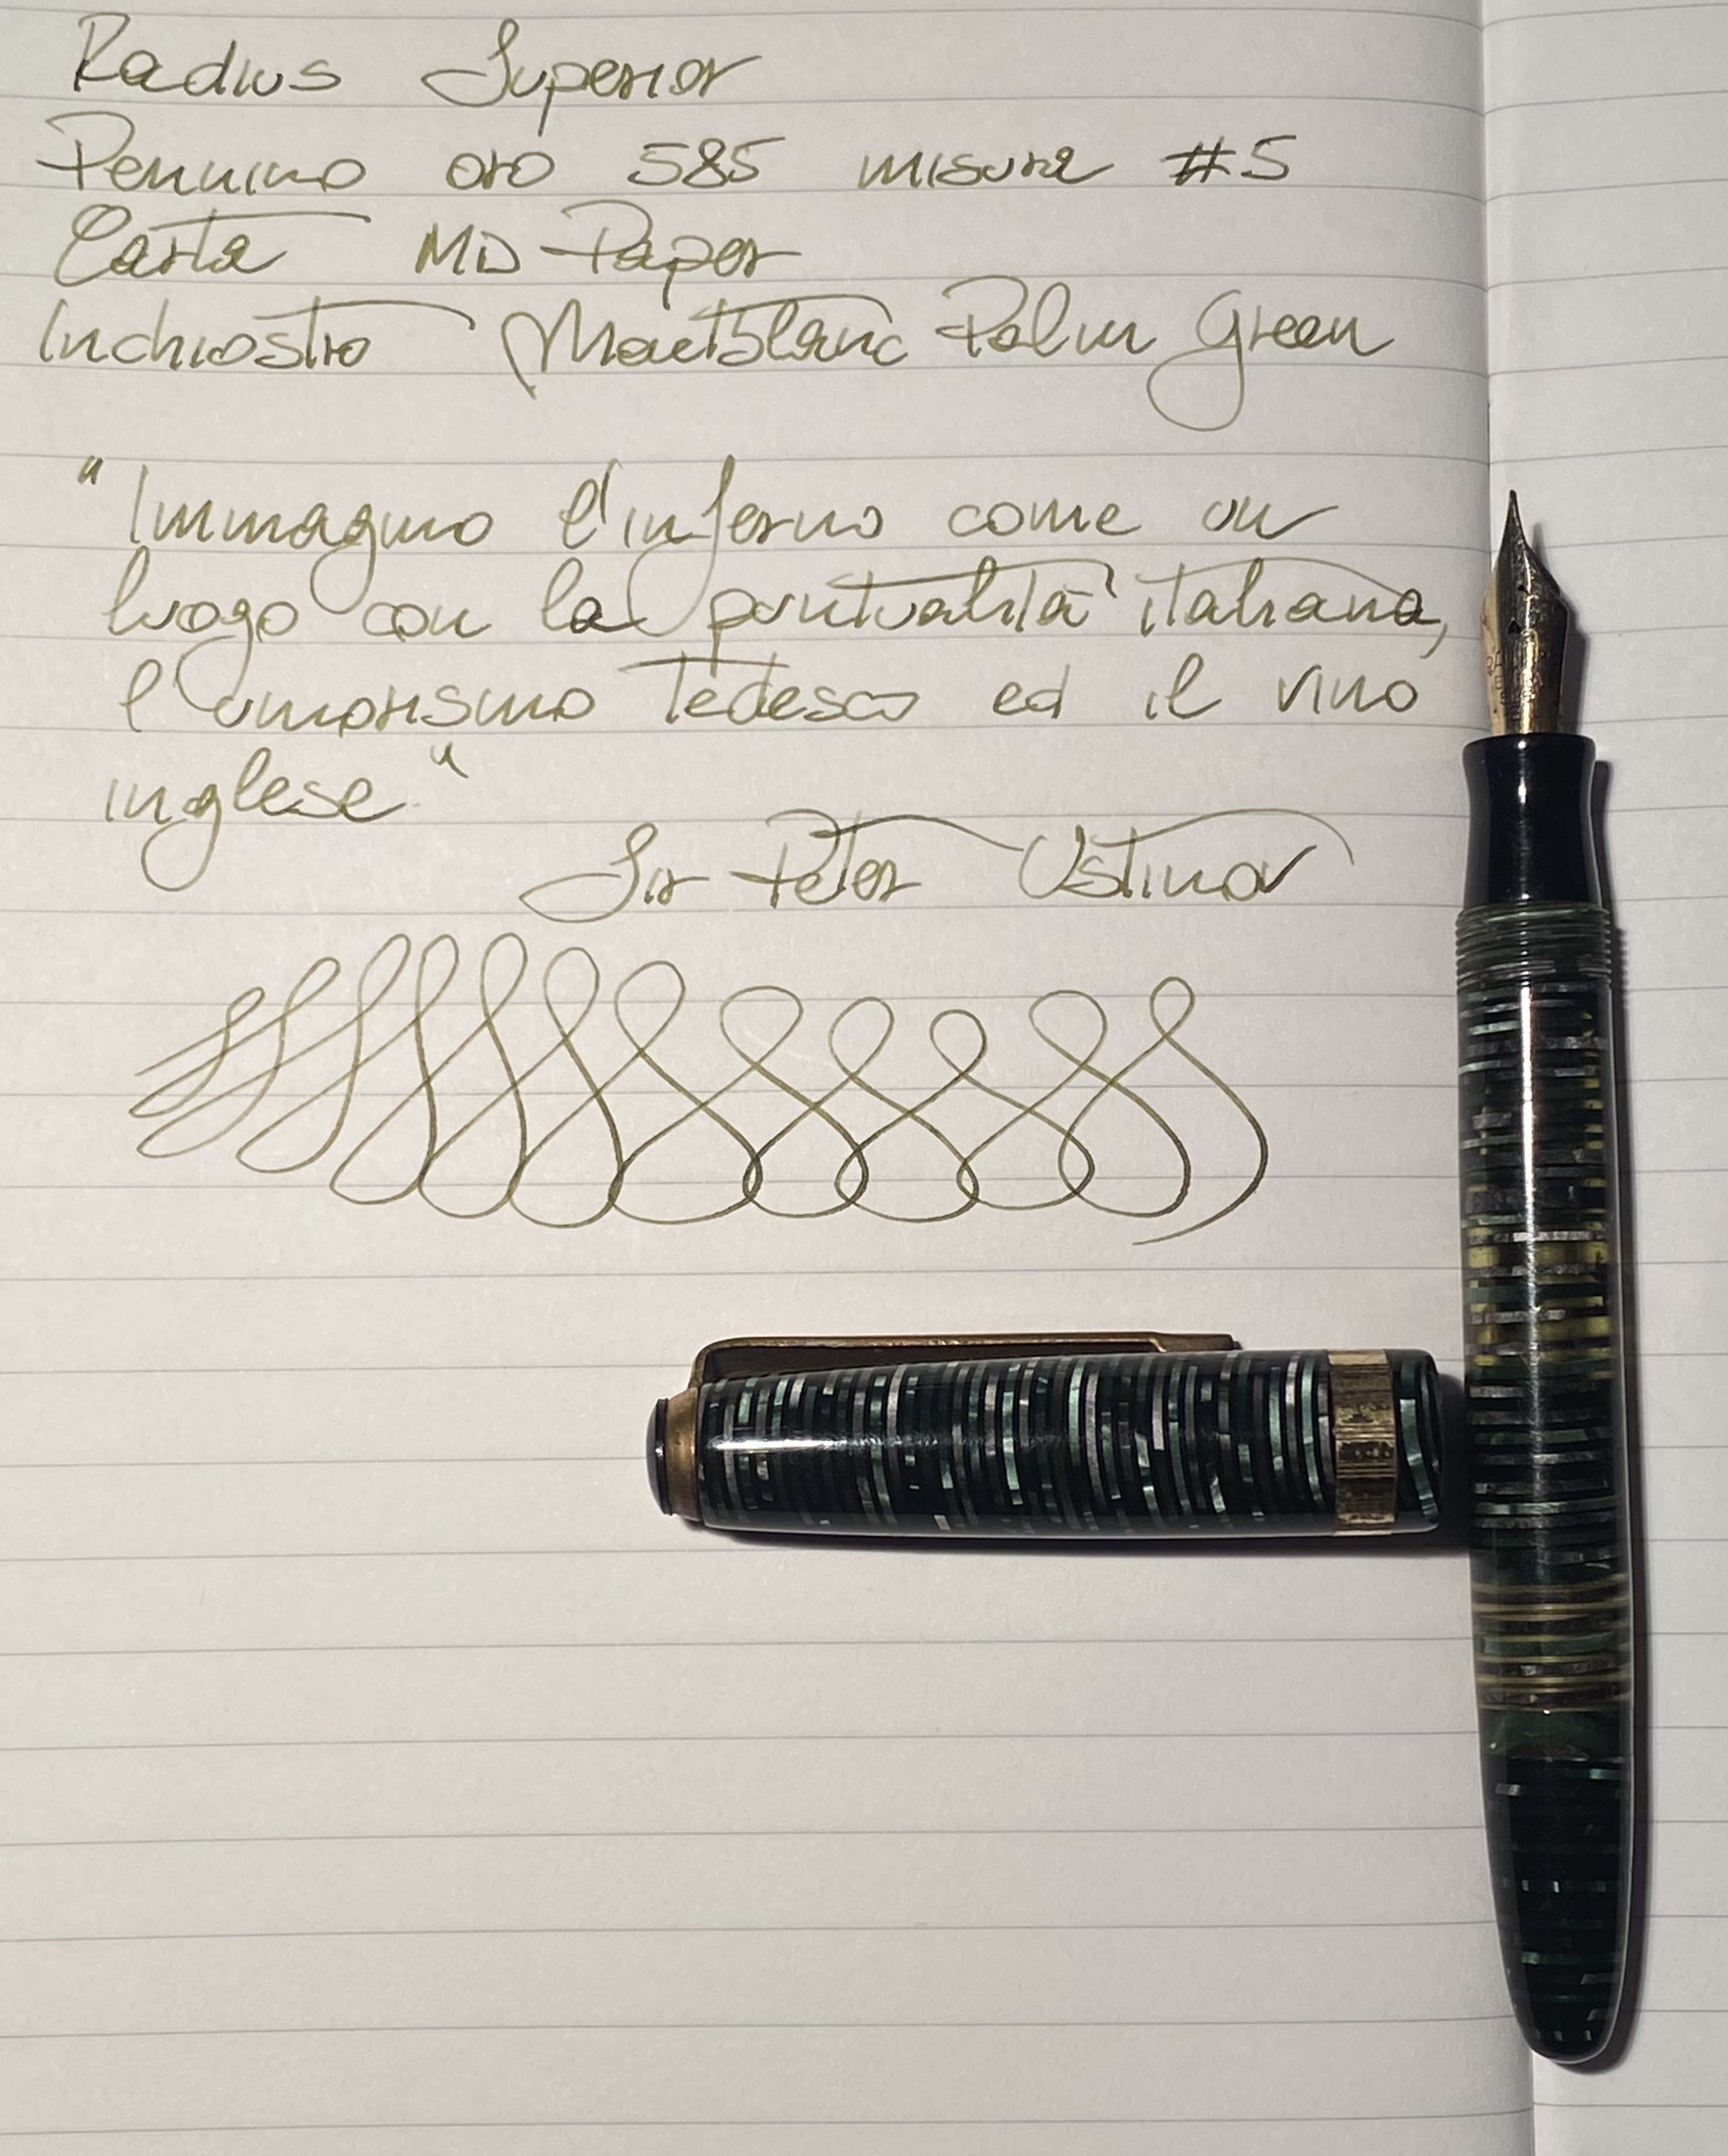 Radius Superior
Pennino oro 585 misura #5
Carta MD Paper
Inchiostro Montblanc Palm Green
"Immagino l'inferno come un
luogo con la puntualità italiana,
l'umorismo tedesco ed il vino
inglese"
Sir Peter Ustinov